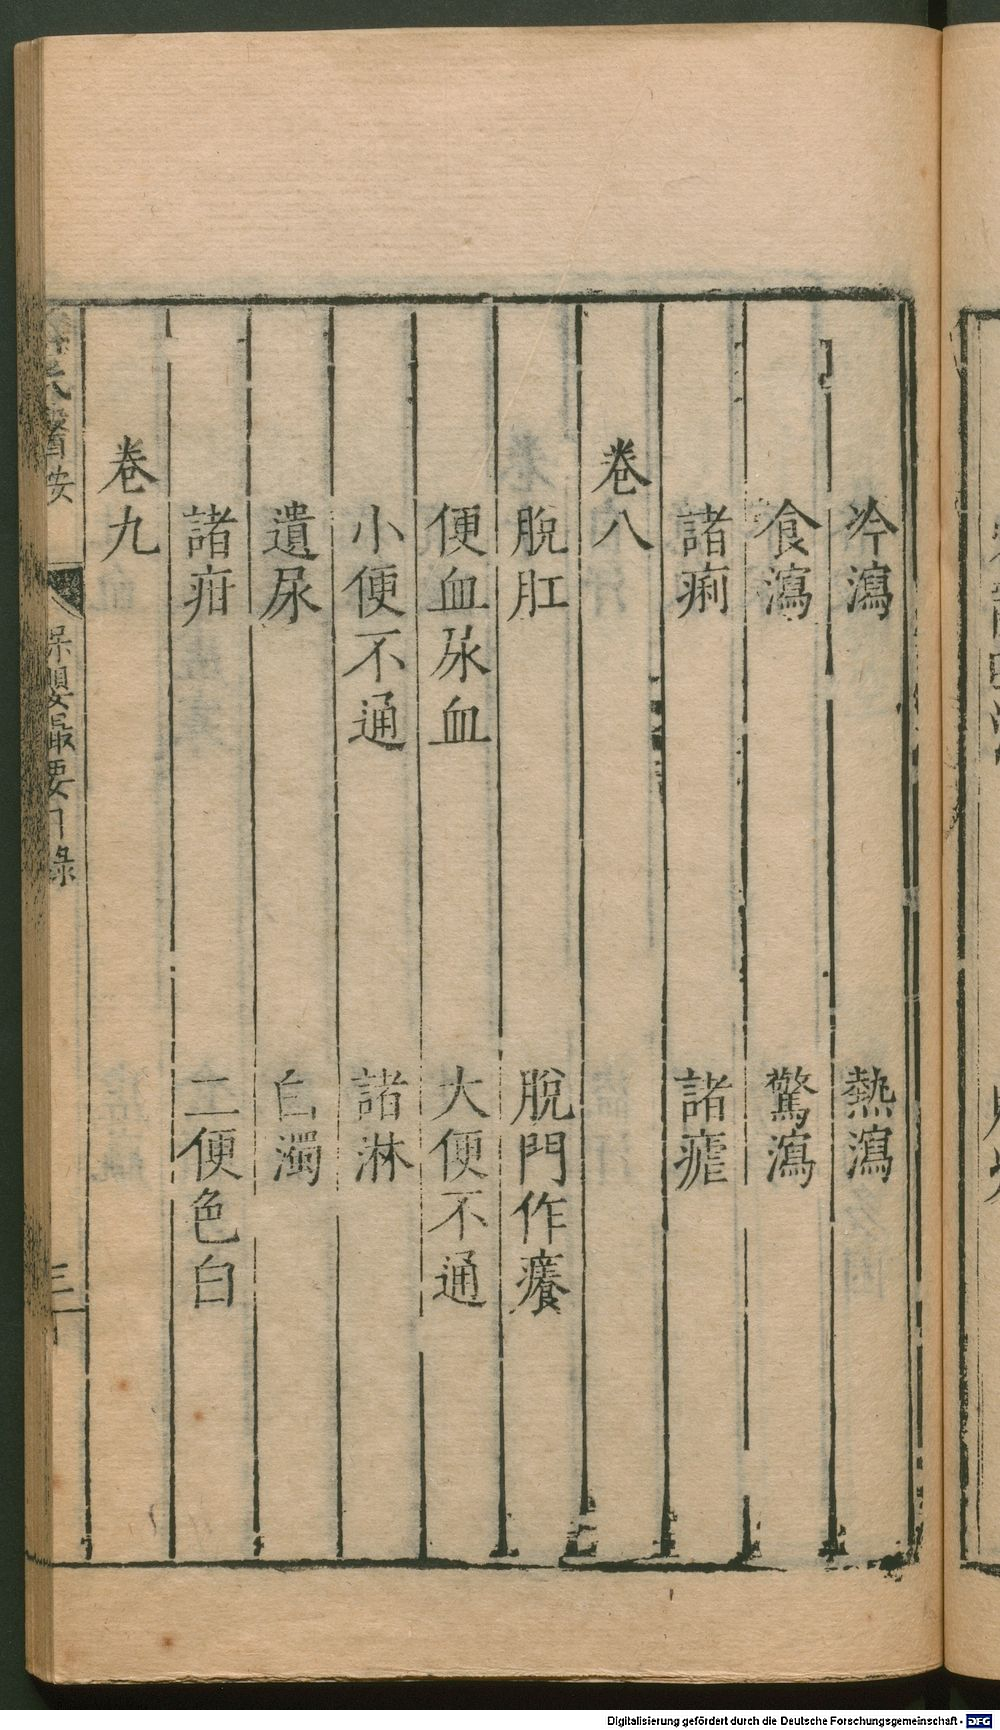 冷瀉 熱瀉
食瀉 驚瀉
諸痢 諸瘧
卷八
脫肛 脫門作癢
便血尿血 大便不通
小便不通 諸淋
遺尿 白濁
諸疳 二便色白
卷九
氏醫按 保嬰撮要目錄 三
Digitalisierung gefördert durch die Deutsche Forschungsgemeinschaft - DFG